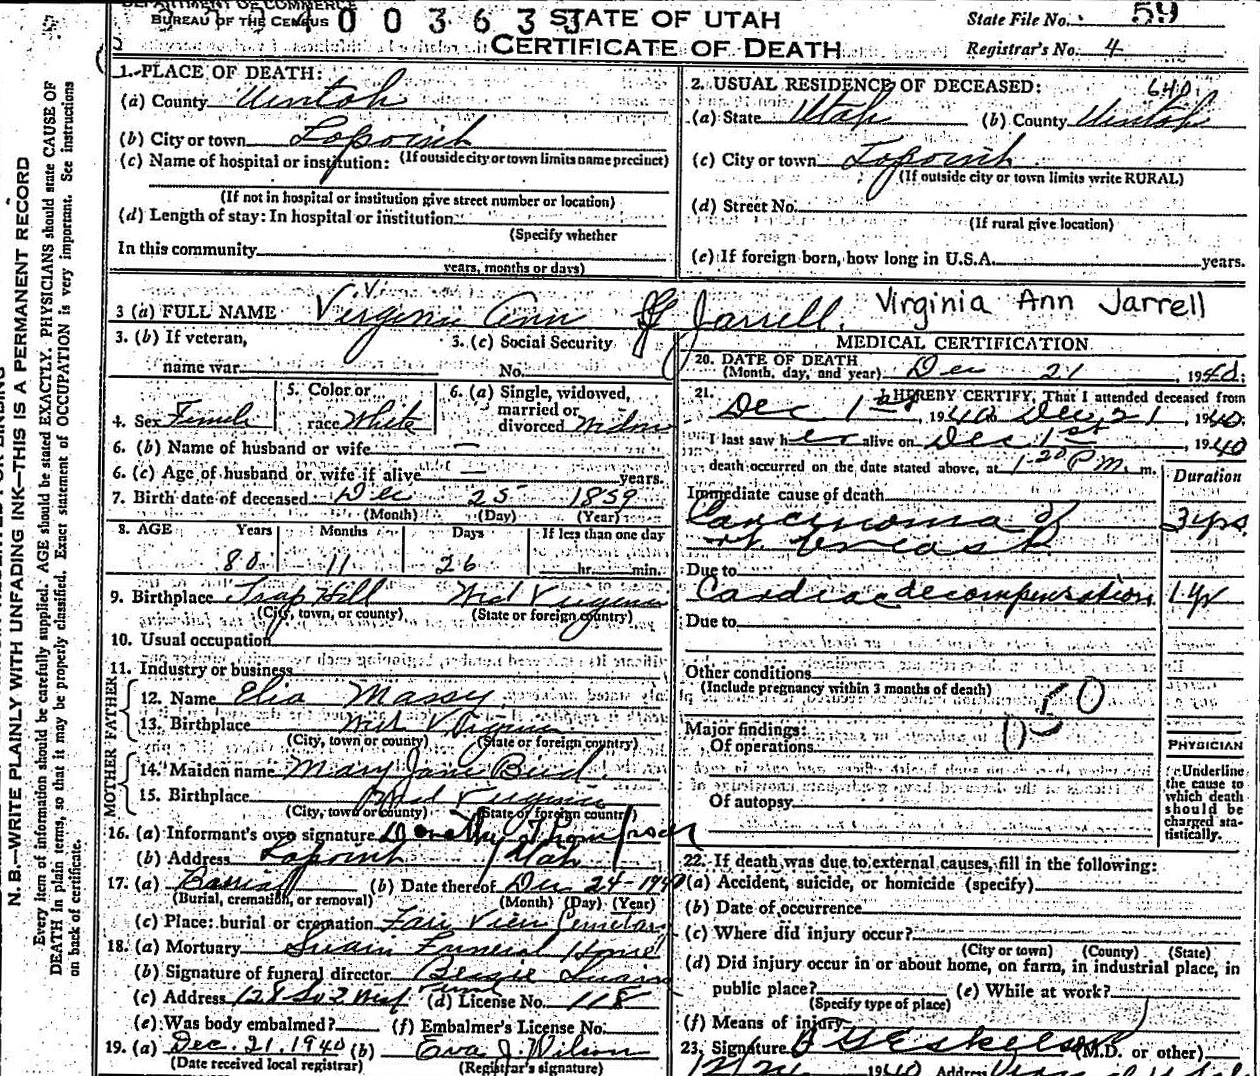 DEPARTMENT OF COMMERCE
BUREAU OF THE CENSUS
003633
STATE OF UTAH
CERTIFICATE OF DEATH
State File No. 59
Registrar's No. 4
N. B.—WRITE PLAINLY WITH UNFADING INK—THIS IS A PERMANENT RECORD
Every item of information should be carefully supplied. AGE should be stated EXACTLY. PHYSICIANS should state CAUSE OF
DEATH in plain terms, so that it may be properly classified. Exact statement of OCCUPATION is very important. See instructions
on back of certificate.
1. PLACE OF DEATH:
(a) County Uintah
(b) City or town Lapoint
(If outside city or town limits name precinct)
(c) Name of hospital or institution:
(If not in hospital or institution give street number or location)
(d) Length of stay: In hospital or institution
(Specify whether
In this community
years, months or days)
2. USUAL RESIDENCE OF DECEASED: 640
(a) State Utah (b) County Uintah
(c) City or town Lapoint
(If outside city or town limits write RURAL)
(d) Street No.
(If rural give location)
(e) If foreign born, how long in U.S.A. years.
3 (a) FULL NAME Virginia Ann Jarrell. Virginia Ann Jarrell
3. (b) If veteran,
name war
3. (c) Social Security
No.
4. Sex Female
5. Color or
race White
6. (a) Single, widowed,
married or
divorced Widow
6. (b) Name of husband or wife —
6. (c) Age of husband or wife if alive — years.
7. Birth date of deceased Dec 25 1859
(Month) (Day) (Year)
8. AGE Years Months Days If less than one day
80 11 26 hr. min.
9. Birthplace Trap Hill West Virginia
(City, town, or county) (State or foreign country)
10. Usual occupation
11. Industry or business
FATHER
12. Name Elia Massy
13. Birthplace West Virginia
(City, town or county) (State or foreign country)
MOTHER
14. Maiden name Mary Jane Bird
15. Birthplace West Virginia
(City, town or county) (State or foreign country)
16. (a) Informant's own signature Dorothy Thompson
(b) Address Lapoint Utah
17. (a) Burial (b) Date thereof Dec 24-1940
(Burial, cremation, or removal) (Month) (Day) (Year)
(c) Place: burial or cremation Fair View Cemetary
18. (a) Mortuary Swain Funeral Home
(b) Signature of funeral director Bessie Swain
(c) Address 128 So 2 West (d) License No. 118
(e) Was body embalmed? (f) Embalmer's License No.
19. (a) Dec. 21. 1940 (b) Eva J. Wilson
(Date received local registrar) (Registrar's signature)
MEDICAL CERTIFICATION
20. DATE OF DEATH
(Month, day, and year) Dec 21, 1940.
21. I HEREBY CERTIFY, That I attended deceased from
Dec 1st, 1940 to Dec 21, 1940.
I last saw her alive on Dec 1st, 1940
death occurred on the date stated above, at 1:20 P.M. m.
Duration
Immediate cause of death
Carcinoma of 3 yrs.
rt. breast
Due to
Cardiac decompensation 1 yr
Due to
Other conditions
(Include pregnancy within 3 months of death)
Major findings:
Of operations
Of autopsy
PHYSICIAN
Underline
the cause to
which death
should be
charged sta-
tistically.
22. If death was due to external causes, fill in the following:
(a) Accident, suicide, or homicide (specify)
(b) Date of occurrence
(c) Where did injury occur?
(City or town) (County) (State)
(d) Did injury occur in or about home, on farm, in industrial place, in
public place? (e) While at work?
(Specify type of place)
(f) Means of injury
23. Signature Eskelson (M.D. or other)
1940 Address